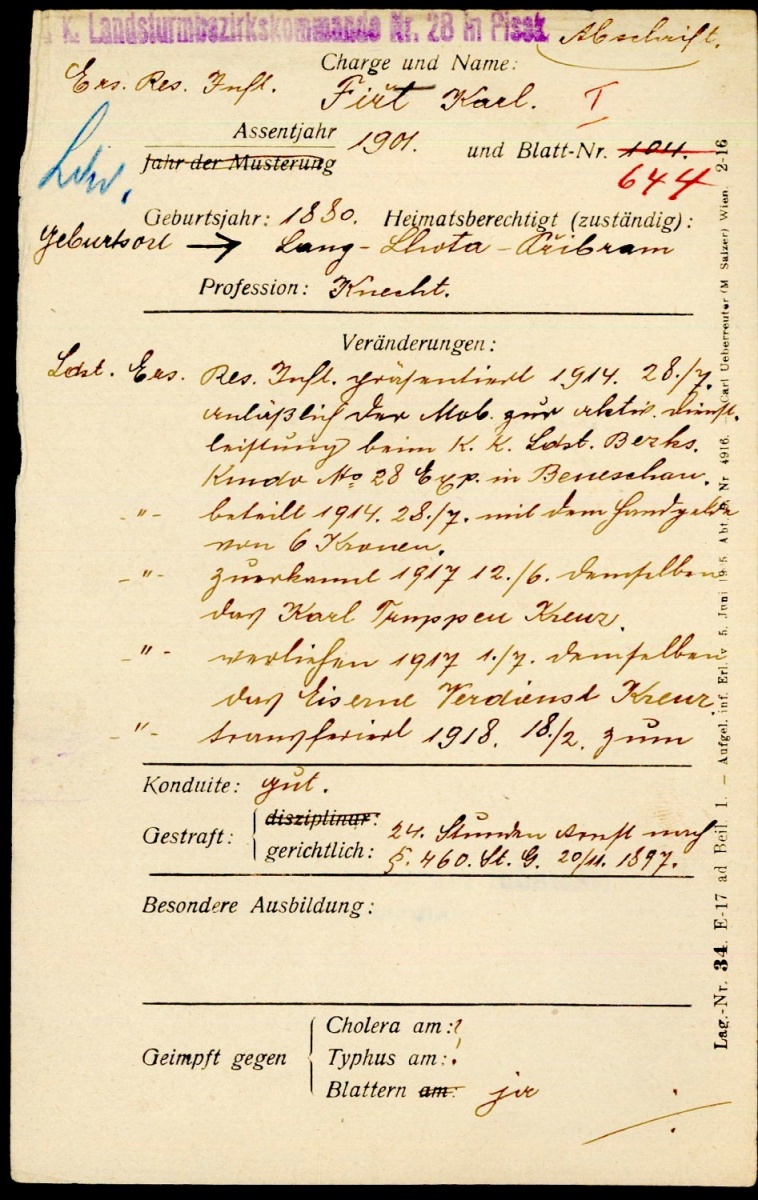 K. Landsturmbezirkskommando Nr. 28 in Pisek
Abschrift.
Charge und Name:
Ers. Res. Inft. Fiřt Karl. I
Assentjahr
Jahr der Musterung
1901. und Blatt-Nr. 104.
644
Ldw.
Geburtsjahr: 1880. Heimatsberechtigt (zuständig):
Geburtsort → Lang-Lhota-Přibram
Profession: Knecht.
Veränderungen:
Ldst. Ers. Res. Inft. präsentiert 1914. 28./7.
anläßlich der Mob. zur aktiv. Dienst-
leistung beim K. K. Ldst. Bezks.
Kmdo No 28 Exp. in Beneschau.
-"- beteilt 1914. 28./7. mit dem Handgelde
von 6 Kronen.
-"- zuerkannt 1917 12./6. demselben
das Karl Truppen Kreuz.
-"- verliehen 1917 1./7. demselben
das Eiserne Verdienst Kreuz.
-"- transferiert 1918. 18./2. zum
Konduite: gut.
Gestraft:
disziplinar:
gerichtlich:
24. Stunden Arrest nach
§. 460. St. G. 20/11. 1897.
Besondere Ausbildung:
Geimpft gegen
Cholera am: ?
Typhus am: !
Blattern am: ja
Lag.-Nr. 34. E-17 ad Beil 1. — Aufgel. inf. Erl. v. 5. Juni 1915, Abt. Nr. 4916. — Carl Ueberreuter (M Salzer) Wien. 2-16